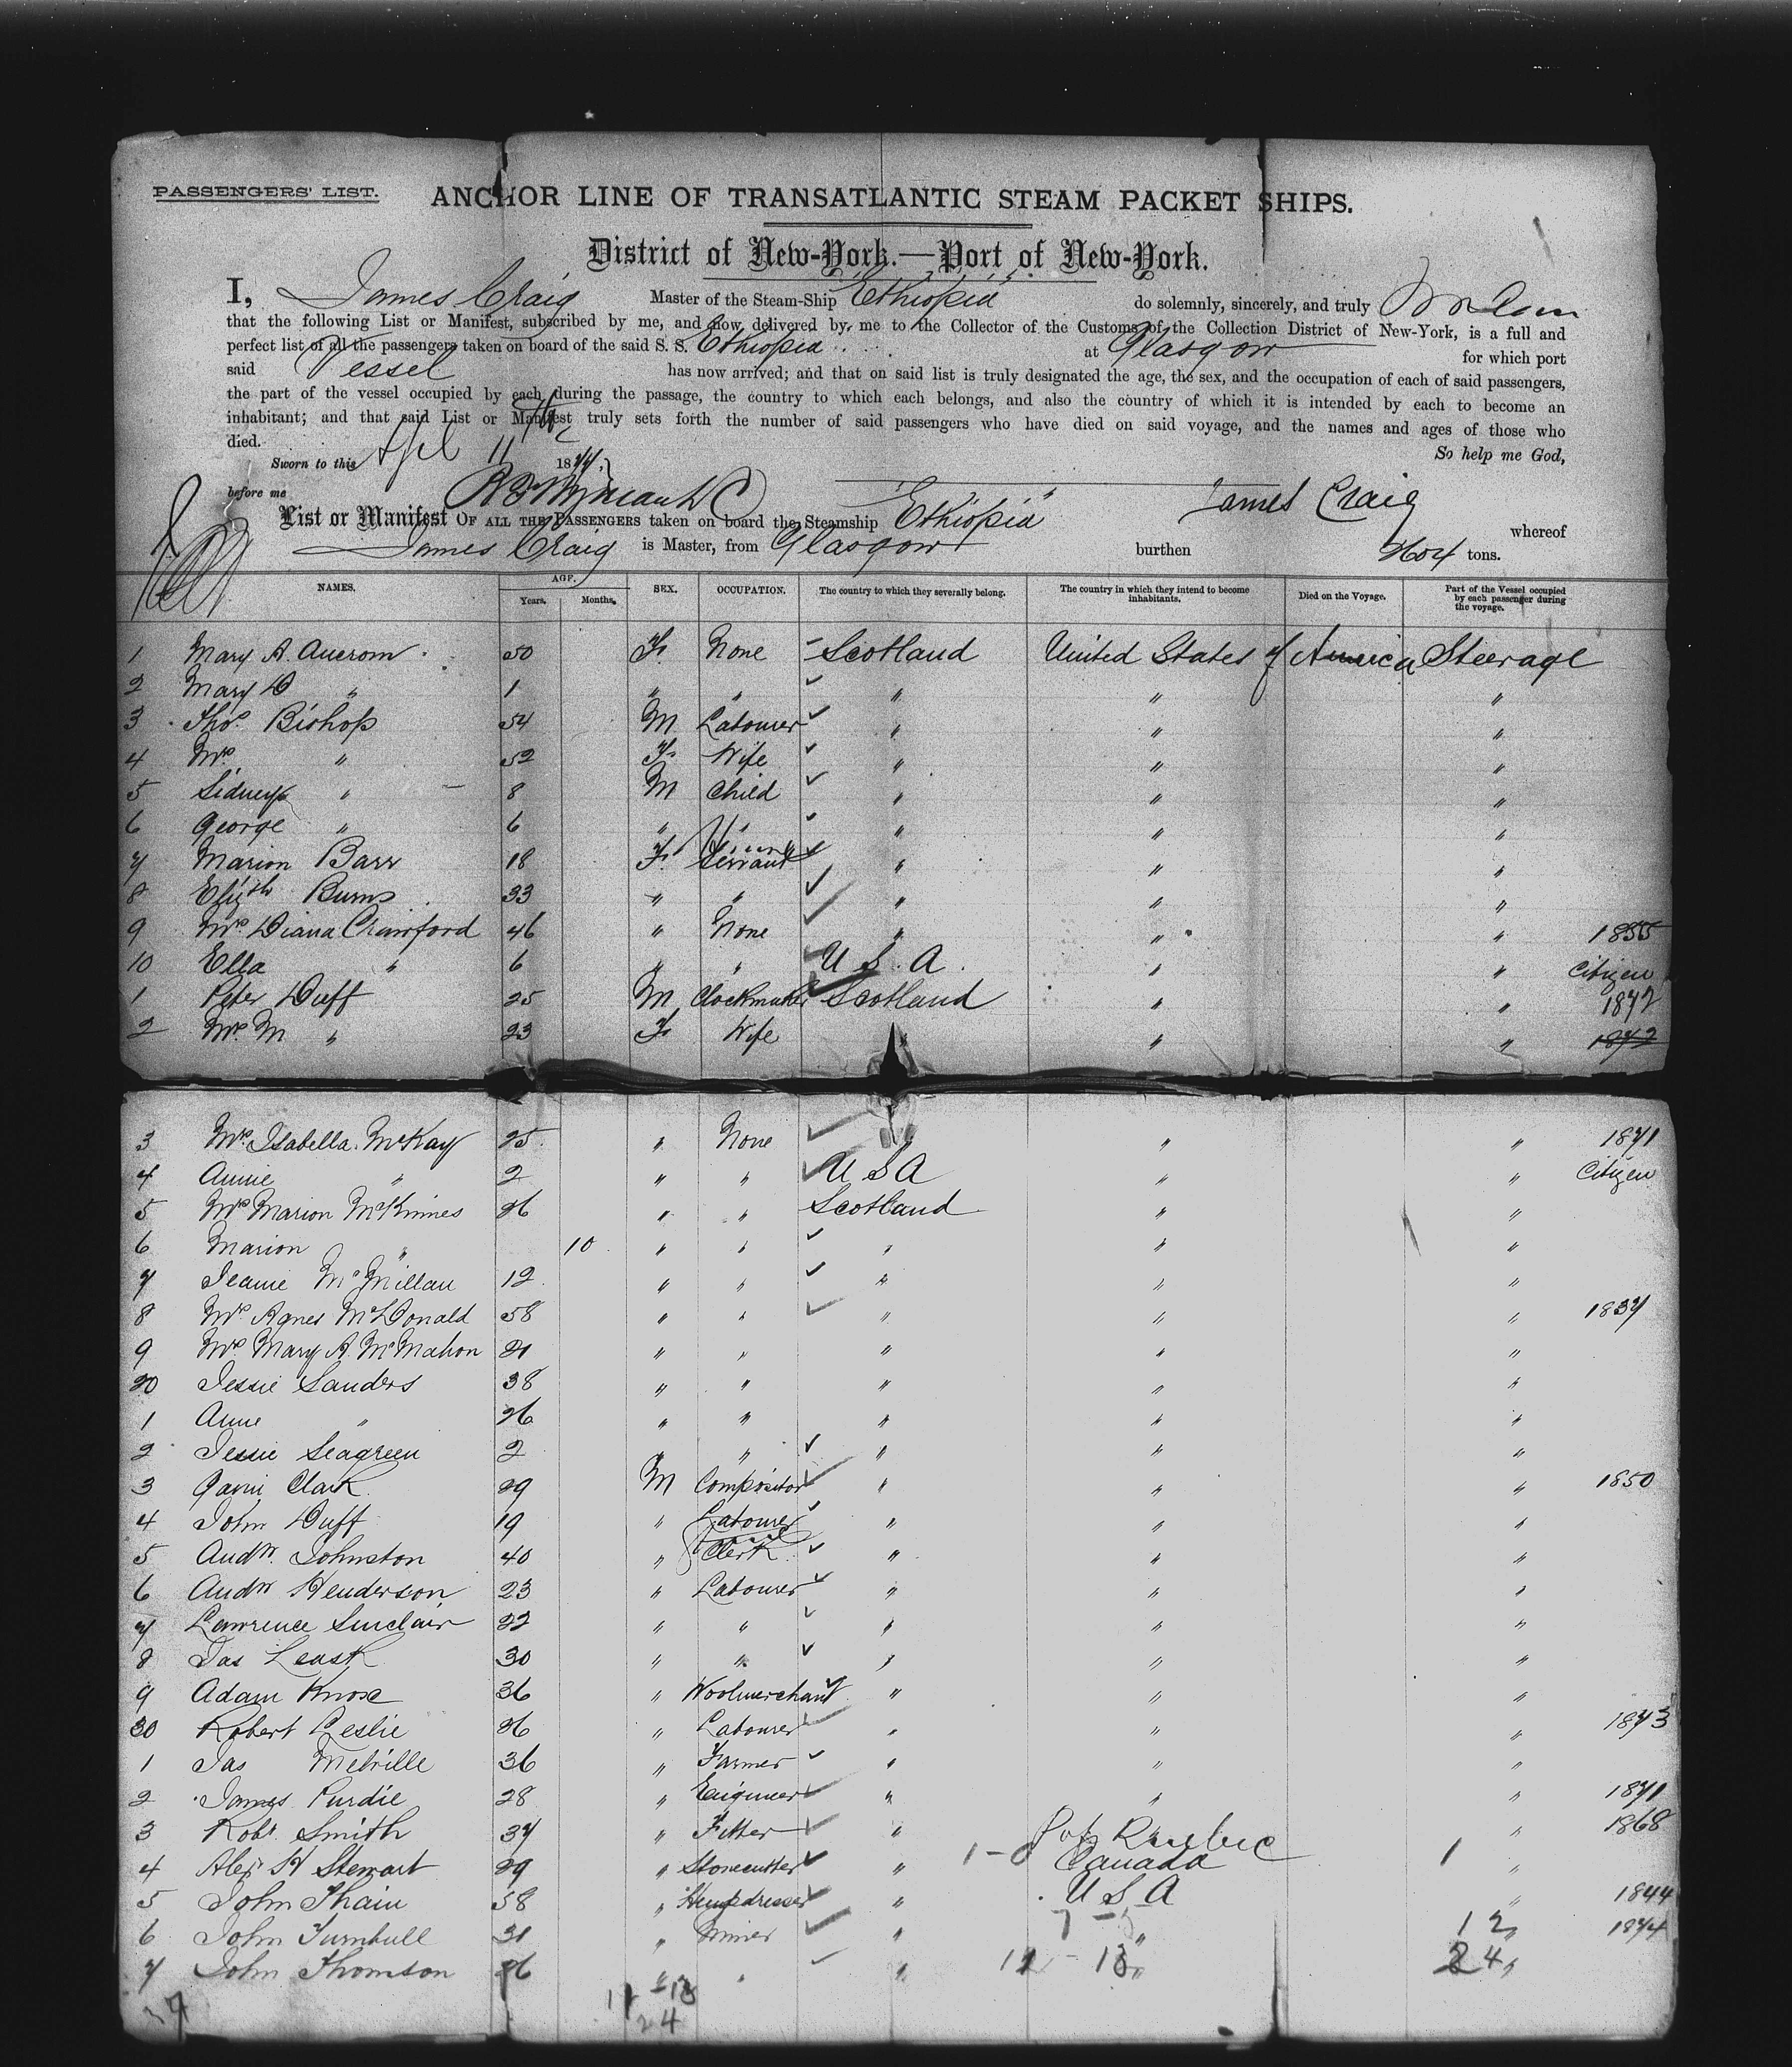 PASSENGERS' LIST.
ANCHOR LINE OF TRANSATLANTIC STEAM PACKET SHIPS.
District of New-York.—Port of New-York.
I, James Craig Master of the Steam-Ship Ethiopia do solemnly, sincerely, and truly
that the following List or Manifest, subscribed by me, and now delivered by me to the Collector of the Customs of the Collection District of New-York, is a full and
perfect list of all the passengers taken on board of the said S. S. Ethiopia at Glasgow for which port
said Vessel has now arrived; and that on said list is truly designated the age, the sex, and the occupation of each of said passengers,
the part of the vessel occupied by each during the passage, the country to which each belongs, and also the country of which it is intended by each to become an
inhabitant; and that said List or Manifest truly sets forth the number of said passengers who have died on said voyage, and the names and ages of those who
died. So help me God,
Sworn to this 11 18
before me James Craig
List or Manifest OF ALL THE PASSENGERS taken on board the Steamship Ethiopia whereof
James Craig is Master, from Glasgow burthen tons.
NAMES. AGE. Years. Months. SEX. OCCUPATION. The country to which they severally belong. The country in which they intend to become inhabitants. Died on the Voyage. Part of the Vessel occupied by each passenger during the voyage.
1 Mary A. 50 F. None Scotland United States of America Steerage
2 Mary D " 1 " " " " "
3 Thos. Bishop 54 M Labourer " " "
4 Mrs. " 52 F. Wife " " "
5 Sidney " 8 M Child " " "
6 George " 6 " " " " "
7 Marion Barr 18 F. Servant " " "
8 Elizth Burns 33 " " " " "
9 Mrs. Diana Crawford 46 " None " " " 1855
10 Ella " 6 " " U.S.A. " " Citizen
1 Peter Duff 25 M Clockmaker Scotland " " 1872
2 Mrs. M " 23 F. Wife " " " 1872
3 Mrs. Isabella McKay 25 " None " " " 1871
4 Annie " 2 " " USA " " Citizen
5 Mrs Marion McKinnes 26 " " Scotland " "
6 Marion " 10 " " " " "
7 Jeanie McMillan 12 " " " " "
8 Mrs. Agnes McDonald 58 " " " " " 1837
9 Mrs. Mary A. McMahon 21 " " " " "
20 Jessie Sanders 38 " " " " "
1 Anne " 26 " " " " "
2 Jessie Seagreen 2 " " " " "
3 Gavin Clark 29 M Compositor " " " 1850
4 John Duff 19 " Labourer " " "
5 Andw. Johnston 40 " Clerk " " "
6 Andw Henderson 23 " Labourer " " "
7 Lawrence Sinclair 22 " " " " "
8 Jas Leask 30 " " " " "
9 Adam Knox 36 " Woolmerchant " " "
30 Robert Leslie 26 " Labourer " " " 1873
1 Jas Melville 36 " Farmer " " "
2 James Purdie 28 " Engineer " " " 1871
3 Robt. Smith 37 " Fitter " " " 1868
4 Alexr H Stewart 29 " Stonecutter " Canada "
5 John Thain 58 " Hempdresser " USA " 1844
6 John Turnbull 31 " Miner " " " 1874
7 John Thomson 26 " " " " "